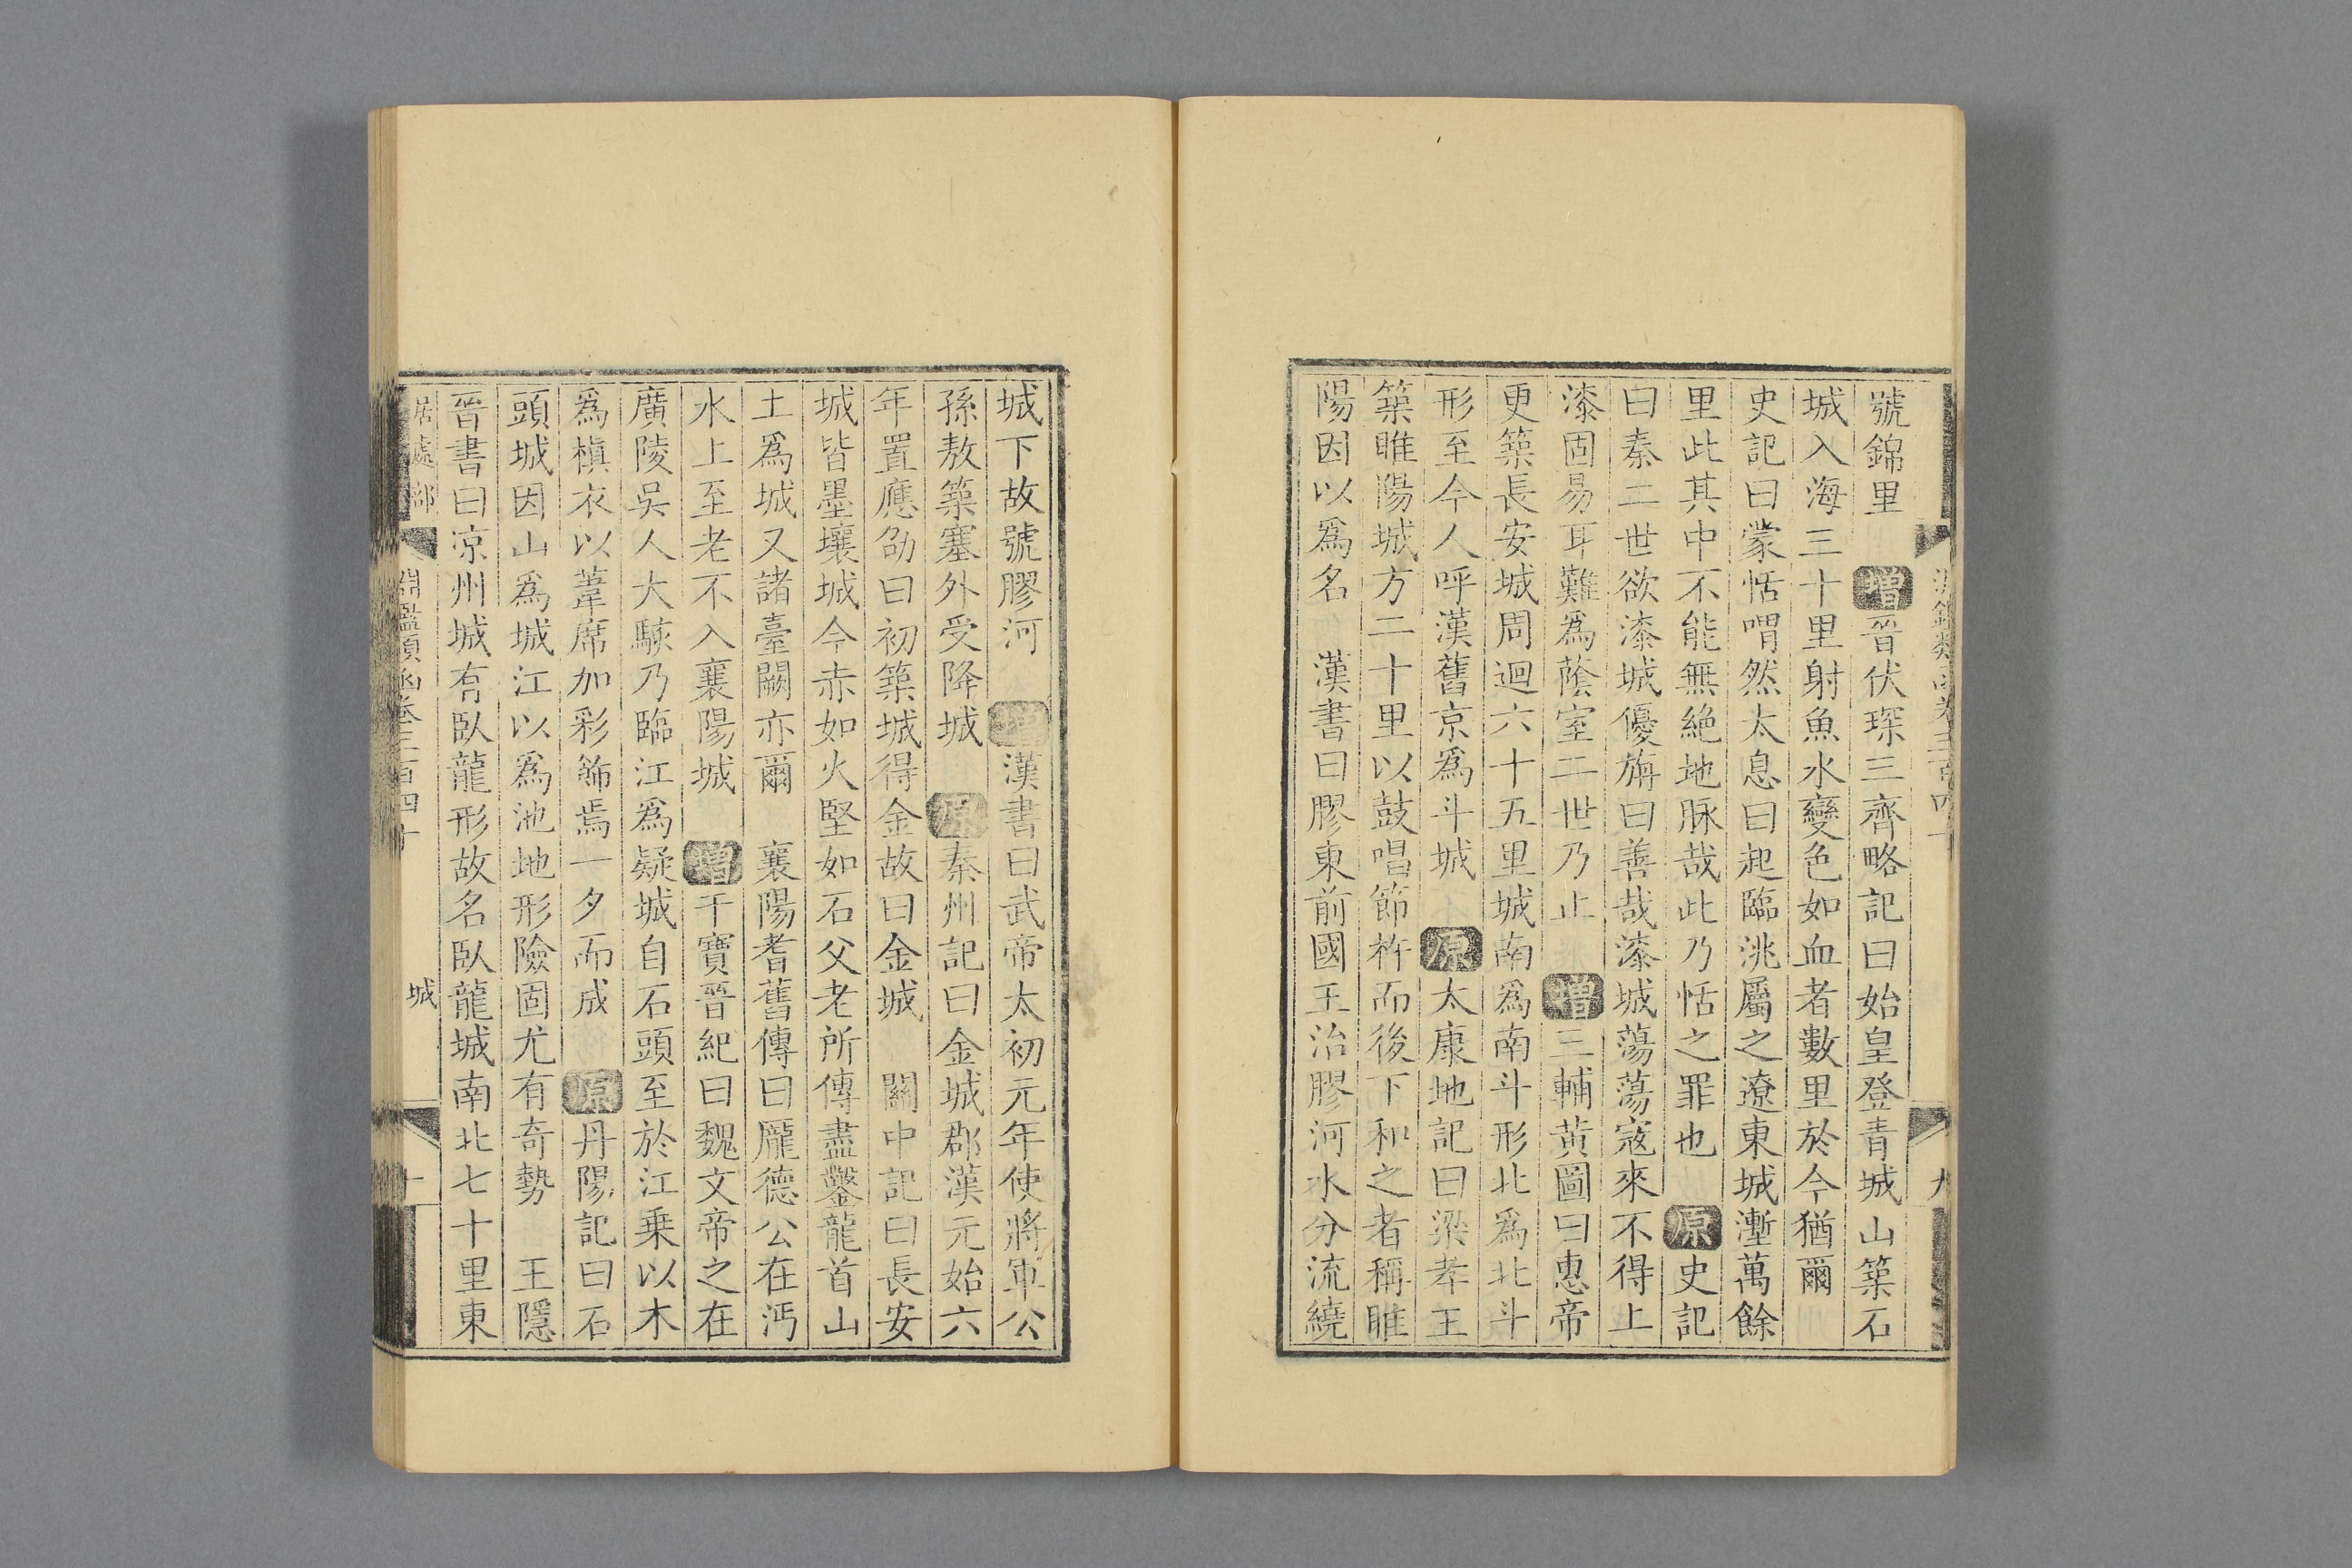 號錦里　增晉伏琛三齊略記曰始皇登青城山築石
城入海三十里射魚水變色如血者數里於今猶爾
史記曰蒙恬喟然太息曰起臨洮屬之遼東城塹萬餘
里此其中不能無絶地脉哉此乃恬之罪也　原史記
曰秦二世欲漆城優旃曰善哉漆城蕩蕩寇來不得上
漆固易耳難爲蔭室二世乃止　增三輔黃圖曰惠帝
更築長安城周迴六十五里城南爲南斗形北爲北斗
形至今人呼漢舊京爲斗城　原太康地記曰梁孝王
築睢陽城方二十里以鼓唱節杵而後下和之者稱睢
陽因以爲名　漢書曰膠東前國王治膠河水分流繞
城下故號膠河　增漢書曰武帝太初元年使將軍公
孫敖築塞外受降城　原秦州記曰金城郡漢元始六
年置應劭曰初築城得金故曰金城　關中記曰長安
城皆墨壤城今赤如火堅如石父老所傳盡鑿龍首山
土爲城又諸臺闕亦爾　襄陽耆舊傳曰龐德公在沔
水上至老不入襄陽城　增干寶晉紀曰魏文帝之在
廣陵吳人大駭乃臨江爲疑城自石頭至於江乗以木
爲楨衣以葦席加彩飾焉一夕而成　原丹陽記曰石
頭城因山爲城江以爲池地形險固尤有奇勢　王隱
晉書曰凉州城有臥龍形故名臥龍城南北七十里東
居處部　淵鑑類函卷三百四十　城　十